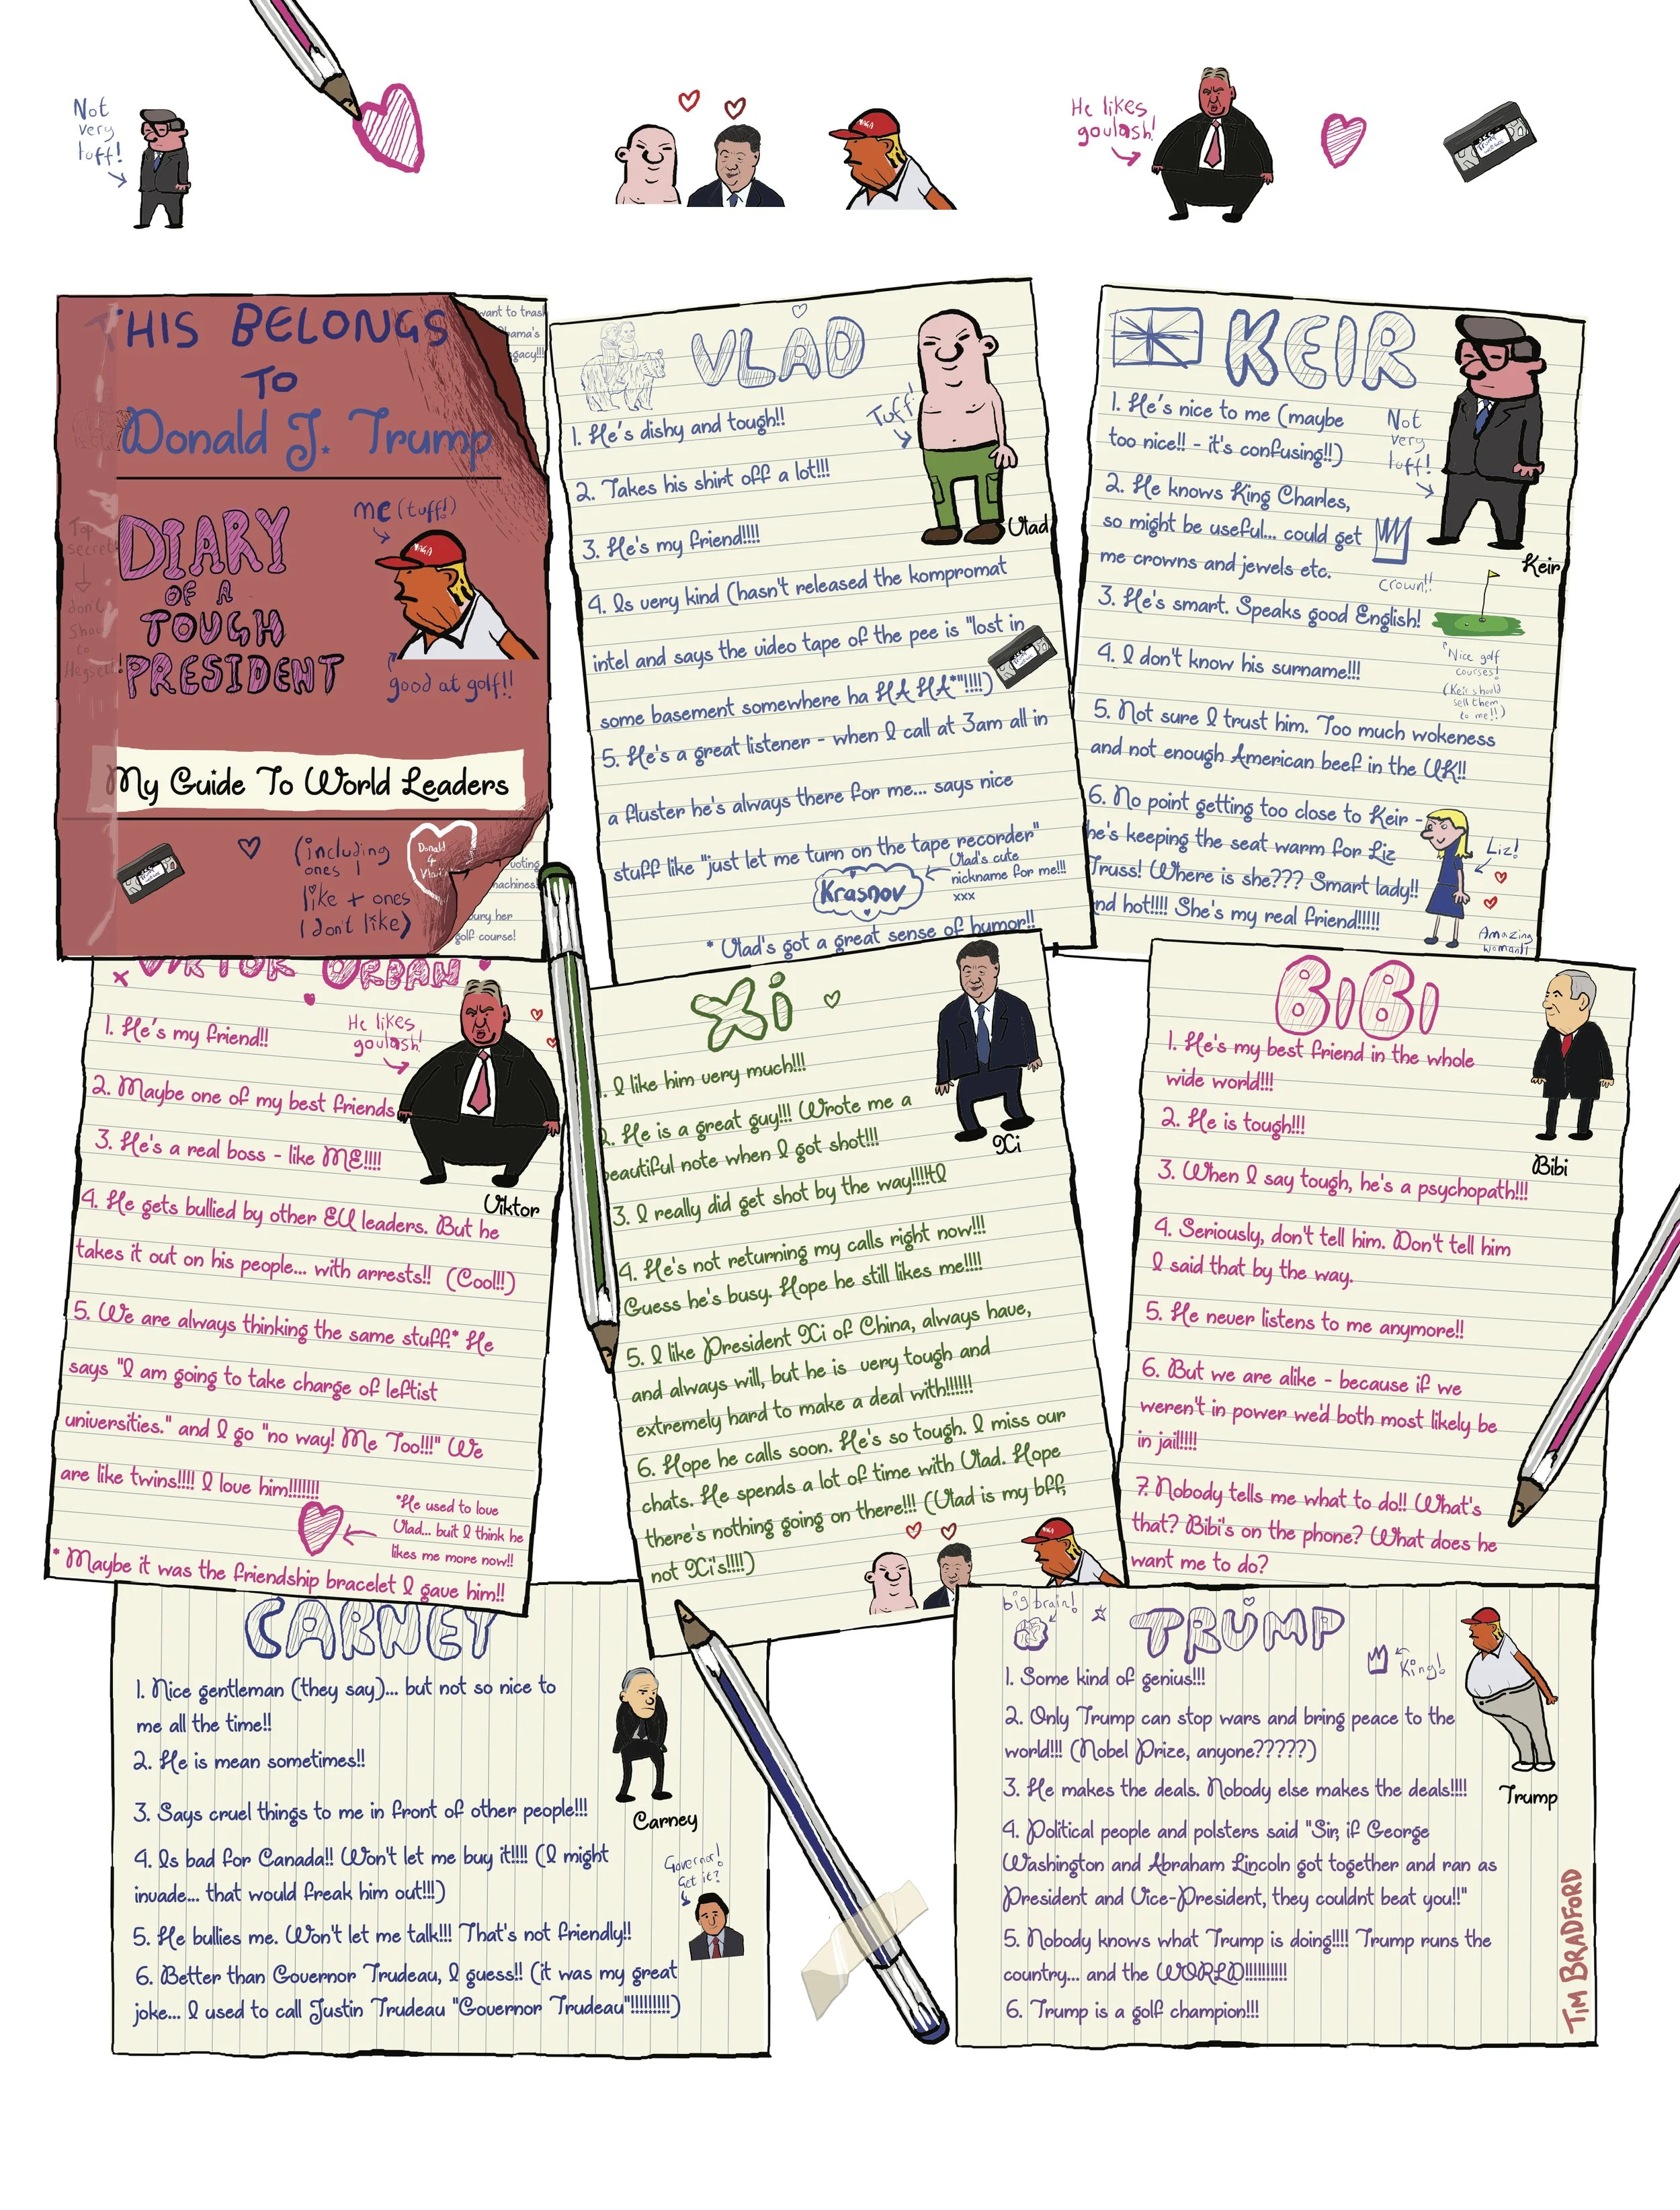 Not
very
tuff!
He likes
goulash!
THIS BELONGS
TO
Donald J. Trump
DIARY
OF A
TOUGH
PRESIDENT
me (tuff!)
MAGA
good at golf!!
Top
secret!
don't
Show
to
Hegseth!
My Guide To World Leaders
(including
ones I
like + ones
I don't like)
Donald
4
Vladimir
want to trash
Obama's
legacy!!!
voting
machines!
bury her
golf course!
VLAD
Tuff!
Vlad
1. He's dishy and tough!!
2. Takes his shirt off a lot!!!
3. He's my friend!!!!
4. Is very kind (hasn't released the kompromat
intel and says the video tape of the pee is "lost in
some basement somewhere ha HA HA*"!!!!)
5. He's a great listener - when I call at 3am all in
a fluster he's always there for me... says nice
stuff like "just let me turn on the tape recorder"
Krasnov
Vlad's cute
nickname for me!!!
xxx
* Vlad's got a great sense of humor!!
KEIR
Not
very
tuff!
Keir
1. He's nice to me (maybe
too nice!! - it's confusing!!)
2. He knows King Charles,
so might be useful... could get
me crowns and jewels etc.
crown!!
3. He's smart. Speaks good English!
4. I don't know his surname!!!
Nice golf
courses!
(Keir should
sell them
to me!!)
5. Not sure I trust him. Too much wokeness
and not enough American beef in the UK!!
6. No point getting too close to Keir -
he's keeping the seat warm for Liz
Truss! Where is she??? Smart lady!!
And hot!!!! She's my real friend!!!!!
Liz!
Amazing
woman!!
VIKTOR ORBAN
He likes
goulash!
Viktor
1. He's my friend!!
2. Maybe one of my best friends
3. He's a real boss - like ME!!!!
4. He gets bullied by other EU leaders. But he
takes it out on his people... with arrests!! (Cool!!)
5. We are always thinking the same stuff.* He
says "I am going to take charge of leftist
universities." and I go "no way! Me Too!!!" We
are like twins!!!! I love him!!!!!!!
*He used to love
Vlad... buit I think he
likes me more now!!
* Maybe it was the friendship bracelet I gave him!!
Xi
Xi
1. I like him very much!!!
2. He is a great guy!!! Wrote me a
beautiful note when I got shot!!!
3. I really did get shot by the way!!!!tI
4. He's not returning my calls right now!!!
Guess he's busy. Hope he still likes me!!!!
5. I like President Xi of China, always have,
and always will, but he is very tough and
extremely hard to make a deal with!!!!!!
6. Hope he calls soon. He's so tough. I miss our
chats. He spends a lot of time with Vlad. Hope
there's nothing going on there!!! (Vlad is my bff,
not Xi's!!!!)
BIBI
Bibi
1. He's my best friend in the whole
wide world!!!
2. He is tough!!!
3. When I say tough, he's a psychopath!!!
4. Seriously, don't tell him. Don't tell him
I said that by the way.
5. He never listens to me anymore!!
6. But we are alike - because if we
weren't in power we'd both most likely be
in jail!!!!!
7. Nobody tells me what to do!! What's
that? Bibi's on the phone? What does he
want me to do?
CARNEY
Carney
1. Nice gentleman (they say)... but not so nice to
me all the time!!
2. He is mean sometimes!!
3. Says cruel things to me in front of other people!!!
4. Is bad for Canada!! Won't let me buy it!!!! (I might
invade... that would freak him out!!!)
Governor!
Get it?
5. He bullies me. Won't let me talk!!! That's not friendly!!
6. Better than Governor Trudeau, I guess!! (it was my great
joke... I used to call Justin Trudeau "Governor Trudeau"!!!!!!!!!)
big brain!
TRUMP
King!
Trump
1. Some kind of genius!!!
2. Only Trump can stop wars and bring peace to the
world!!! (Nobel Prize, anyone?????)
3. He makes the deals. Nobody else makes the deals!!!!
4. Political people and polsters said "Sir, if George
Washington and Abraham Lincoln got together and ran as
President and Vice-President, they couldnt beat you!!"
5. Nobody knows what Trump is doing!!!! Trump runs the
country... and the WORLD!!!!!!!!!!
6. Trump is a golf champion!!!
TIM BRADFORD